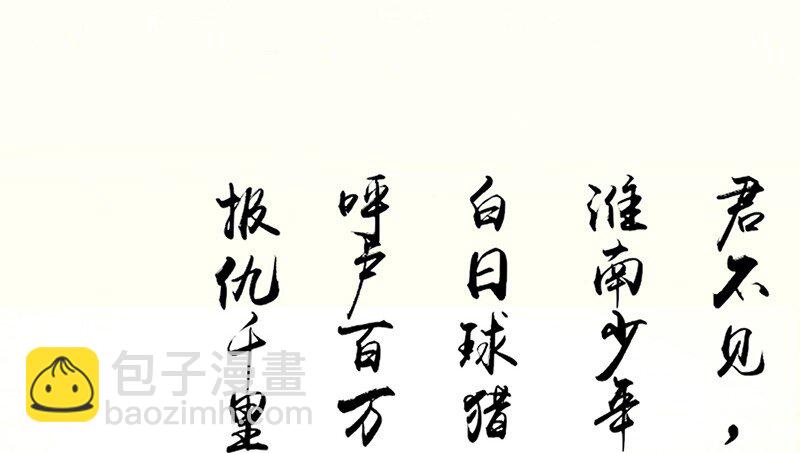 君不见，
淮南少年
白日球猎
呼卢百万
报仇千里
包子漫畫
baozimh.com